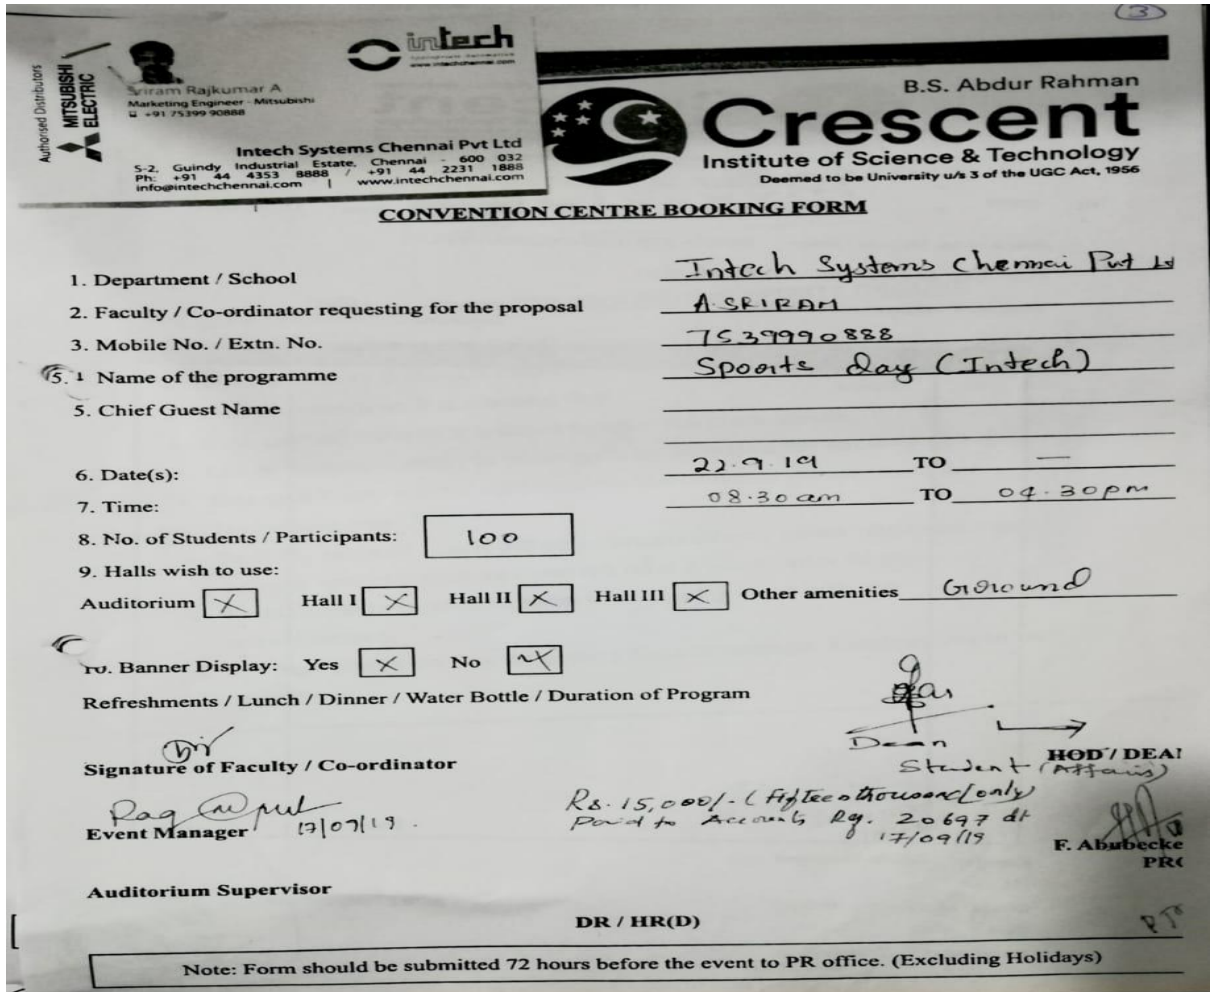 3
Authorised Distributors
MITSUBISHI
ELECTRIC
intech
www.intechchennai.com
Sriram Rajkumar A
Marketing Engineer - Mitsubishi
+91 75399 90888
Intech Systems Chennai Pvt Ltd
S-2, Guindy Industrial Estate, Chennai - 600 032
Ph: +91 44 4353 8888 / +91 44 2231 1888
info@intechchennai.com | www.intechchennai.com
B.S. Abdur Rahman
Crescent
Institute of Science & Technology
Deemed to be University u/s 3 of the UGC Act, 1956
CONVENTION CENTRE BOOKING FORM
1. Department / School Intech Systems Chennai Pvt Ltd
2. Faculty / Co-ordinator requesting for the proposal A.SRIRAM
3. Mobile No. / Extn. No. 7539990888
Name of the programme Spoorts day (Intech)
5. Chief Guest Name
6. Date(s): 22.9.19 TO —
7. Time: 08.30 am TO 04.30pm
8. No. of Students / Participants: 100
9. Halls wish to use:
Auditorium X Hall I X Hall II X Hall III X Other amenities Ground
10. Banner Display: Yes X No X
Refreshments / Lunch / Dinner / Water Bottle / Duration of Program
Dean
HOD / DEA
Student (Affairs)
Signature of Faculty / Co-ordinator
Rs. 15,000/- (fifteen thousand only)
Paid to Accounts Rg. 20697 dt
17/09/19
Event Manager 17/09/19.
F. Abubecke
PR
Auditorium Supervisor
DR / HR(D)
Note: Form should be submitted 72 hours before the event to PR office. (Excluding Holidays)